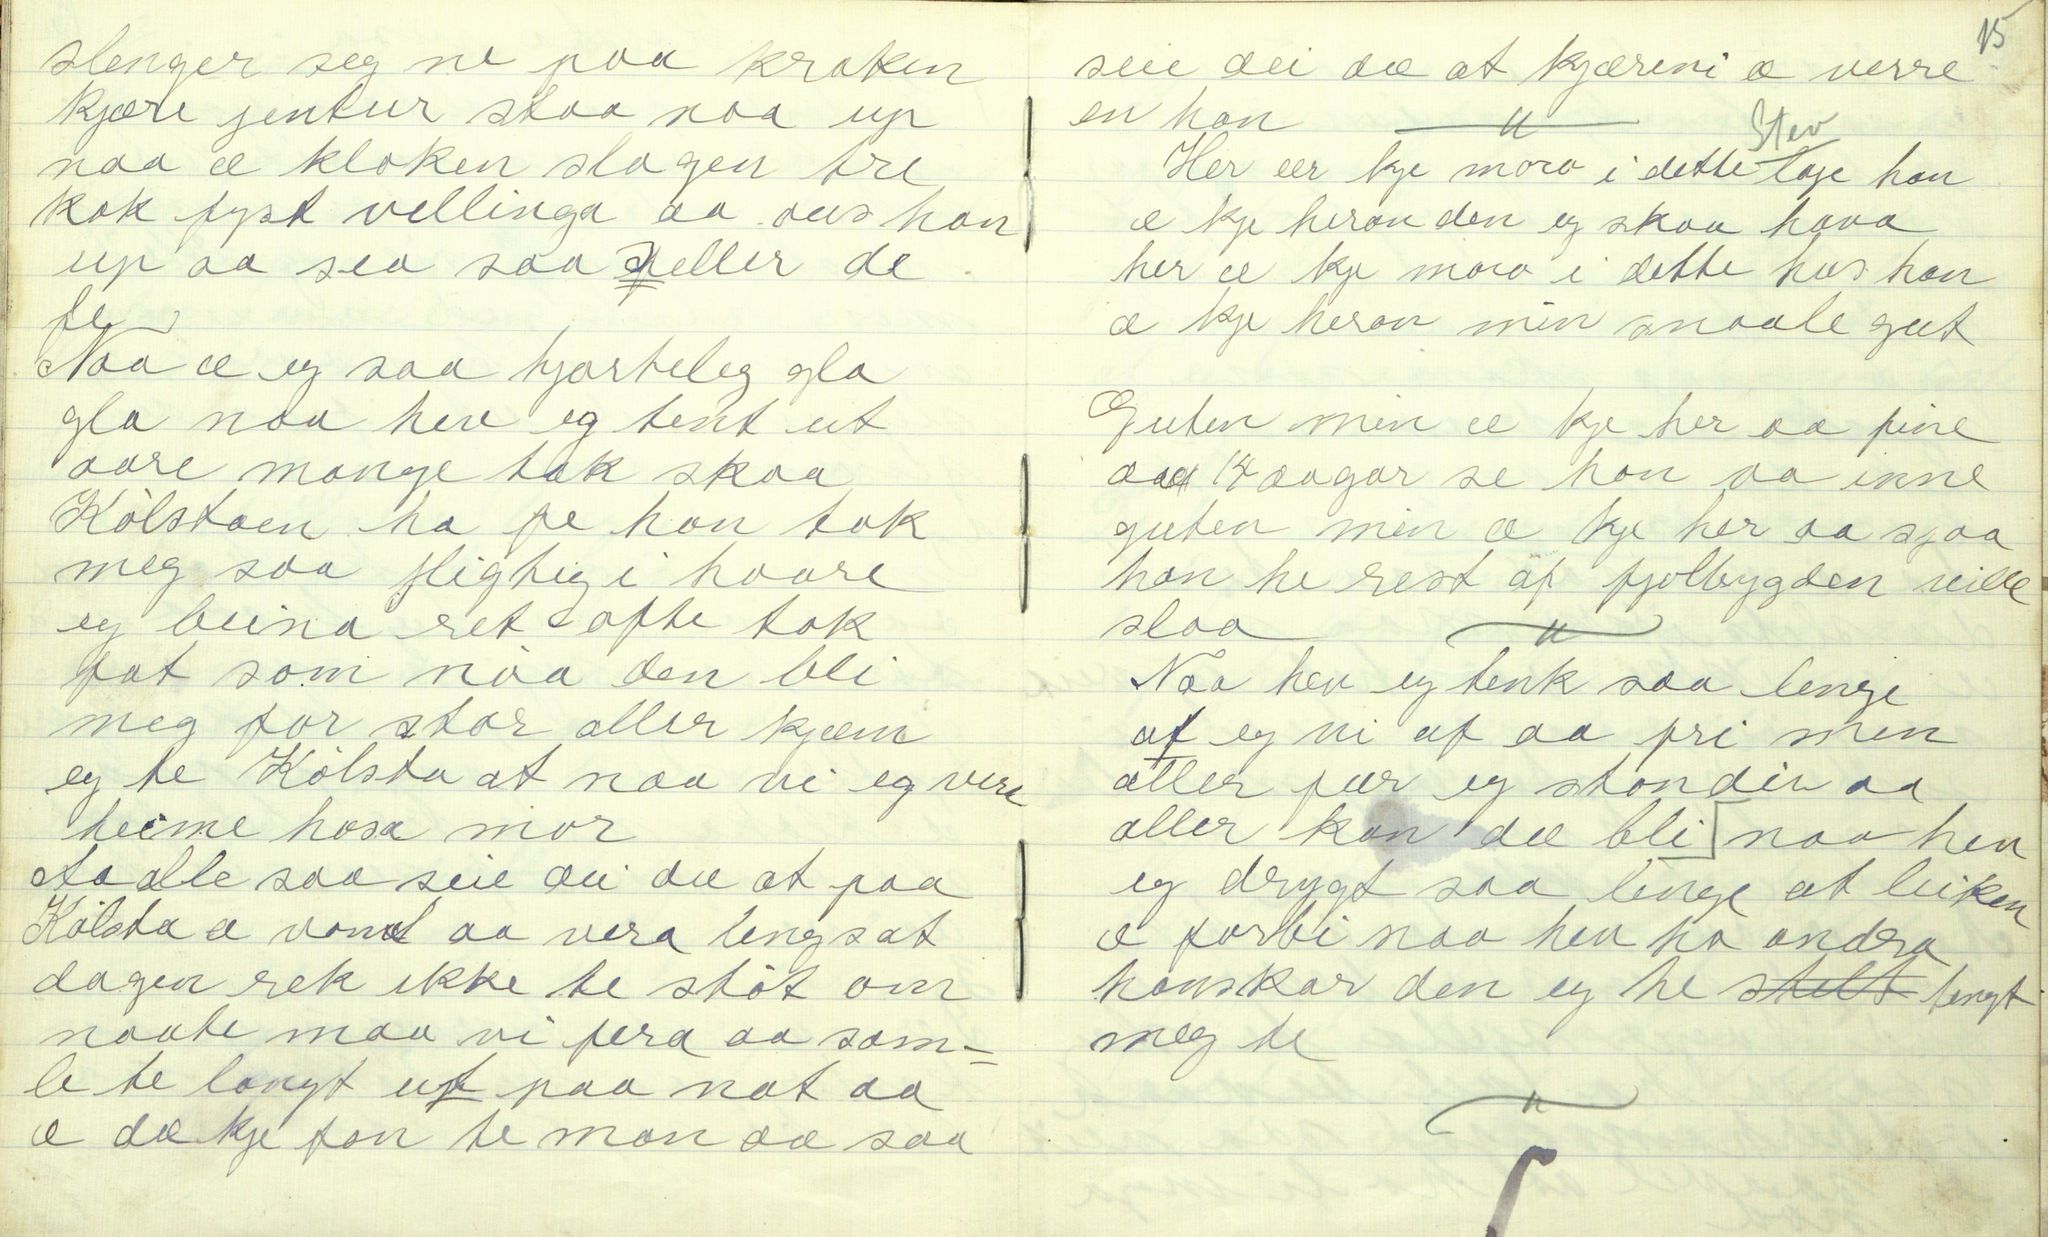 slenger seg ne paa kraken
kjære jentur staa naa up
naa æ kloken slagen tre
kok fyst vellinga aa aus han
up aa sea saa speller de
fe
Naa æ eg saa hjarteleg gla
gla naa hev eg tent ut
aare mange tak skaa
Kòlstaen ha fe han tok
meg saa fligtig i haare
eg beina ret ofte tok
fat som naa den bli
meg for stor aller kjæm
eg te Kòlsta at naa vi eg vera
heime hosa mor
Aa alle saa seie dei dæ at paa
Kòlsta æ vondt aa vera lengsat
dagen rek ikke te støt om
naate maa vi fera aa som-
le te langt ut paa nat aa
æ dæ kje fan te man dæ saa
15
seie dei dæ at kjæreni æ verre
en han
Stev
Her æer kje moro i dette laje han
æ kje heran den eg skaa hava
her æ kje moro i dette hus han
æ kje heran min snaale gut
Guten min æ kje her aa fine
14 aagar se han va inne
guten min æ kje her aa sjaa
han he rest af fjolbygden ville
slaa
Naa hev eg tenk saa lenge
at eg vi af aa fri men
aller fær eg standin aa
aller kan dæ bli naa hev
eg drygt saa lenge at leiken
æ forbi naa hev ho andra
hanskar den eg he stelt tengt
meg te